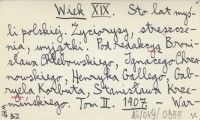 Wiek XIX. Sto lat myś-
li polskiej. Życiorysy, streszcze-
nia, wyjątki. Pod redakcyą Broni-
sława Chlebowskiego, Ignacego Chrza-
nowskiego, Henryka Gallego, Gab-
ryela Korbuta, Stanisława Krze-
mińskiego. Tom II. 1907 – War-